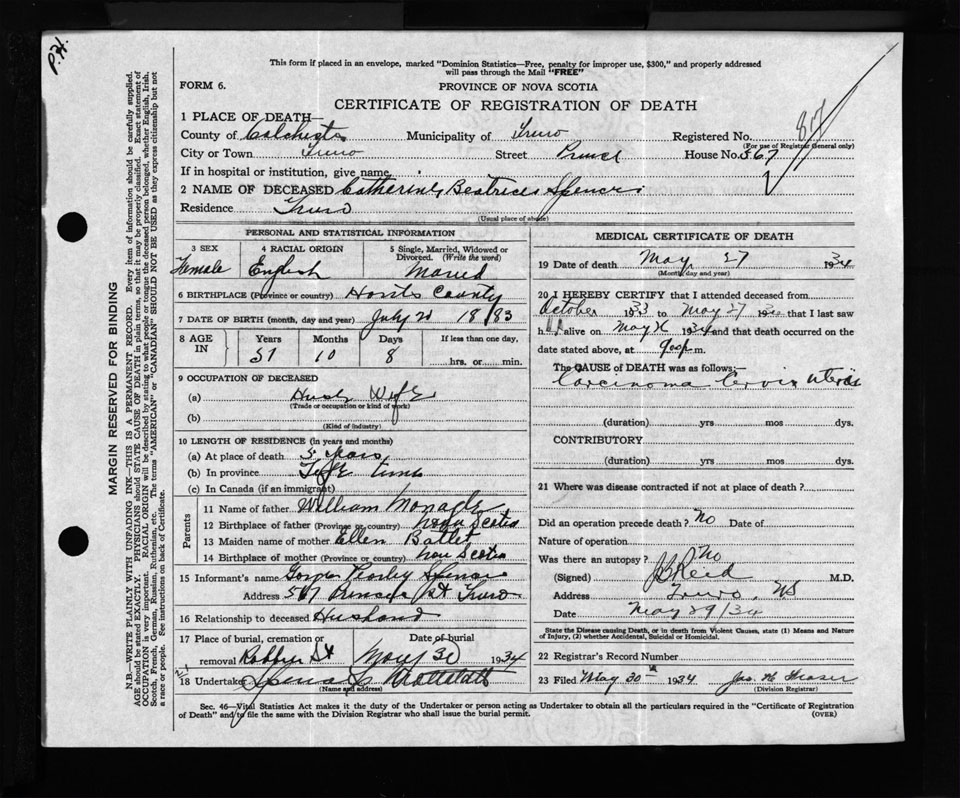 P.H.
This form if placed in an envelope, marked "Dominion Statistics—Free, penalty for improper use, $300," and properly addressed
will pass through the Mail "FREE"
FORM 6.
PROVINCE OF NOVA SCOTIA
CERTIFICATE OF REGISTRATION OF DEATH
1 PLACE OF DEATH—
County of Colchester Municipality of Truro Registered No.
(For use of Registrar General only)
City or Town Truro Street Prince House No. 567
If in hospital or institution, give name
2 NAME OF DECEASED Catherine Beatrice Spencer
Residence Truro
(Usual place of abode)
PERSONAL AND STATISTICAL INFORMATION
3 SEX 4 RACIAL ORIGIN 5 Single, Married, Widowed or Divorced. (Write the word)
Female English Married
6 BIRTHPLACE (Province or country) Hants County
7 DATE OF BIRTH (month, day and year) July 1883
8 AGE IN Years Months Days If less than one day,
51 10 8 hrs. or min.
9 OCCUPATION OF DECEASED
(a) House Wife
(Trade or occupation or kind of work)
(b)
(Kind of industry)
10 LENGTH OF RESIDENCE (in years and months)
(a) At place of death 5 years
(b) In province Life time
(c) In Canada (if an immigrant)
Parents
11 Name of father William
12 Birthplace of father (Province or country) Nova Scotia
13 Maiden name of mother Ellen
14 Birthplace of mother (Province or country) Nova Scotia
15 Informant's name Spencer
Address 567 Prince St Truro
16 Relationship to deceased Husband
17 Place of burial, cremation or Date of burial
removal May 30 1934
18 Undertaker
(Name and address)
MEDICAL CERTIFICATE OF DEATH
19 Date of death May 27 1934
(Month, day and year)
20 I HEREBY CERTIFY that I attended deceased from
October 1933 to May 27 19 that I last saw
h alive on May 1934 and that death occurred on
date stated above, at 9:00 p m.
The CAUSE of DEATH was as follows:—
Carcinoma Cervix uterus
(duration) yrs mos dys.
CONTRIBUTORY
(duration) yrs. mos. dys.
21 Where was disease contracted if not at place of death?
Did an operation precede death? No Date of
Nature of operation
Was there an autopsy? No
(Signed) Reid M.D.
Address Truro, NS
Date May 29/34
State the Disease causing Death, or in death from Violent Causes, state (1) Means and Nature
of Injury, (2) whether Accidental, Suicidal or Homicidal.
22 Registrar's Record Number
23 Filed May 30 1934 Jas. H. Fraser
(Division Registrar)
Sec. 46—Vital Statistics Act makes it the duty of the Undertaker or person acting as Undertaker to obtain all the particulars required in the "Certificate of Registration
of Death" and to file the same with the Division Registrar who shall issue the burial permit. (OVER)
MARGIN RESERVED FOR BINDING
N.B.—WRITE PLAINLY WITH UNFADING INK—THIS IS A PERMANENT RECORD. Every item of information should be carefully supplied.
AGE should be stated EXACTLY. PHYSICIANS should STATE CAUSE OF DEATH in plain terms, so that it may be properly classified. Exact statement of
OCCUPATION is very important. RACIAL ORIGIN will be described by stating to what people or tongue the deceased person belonged, whether English, Irish,
Scotch, French, German, Russian, Ruthenian, etc. The terms "AMERICAN" or "CANADIAN" SHOULD NOT BE USED as they express citizenship but not
a race or people. See instructions on back of Certificate.